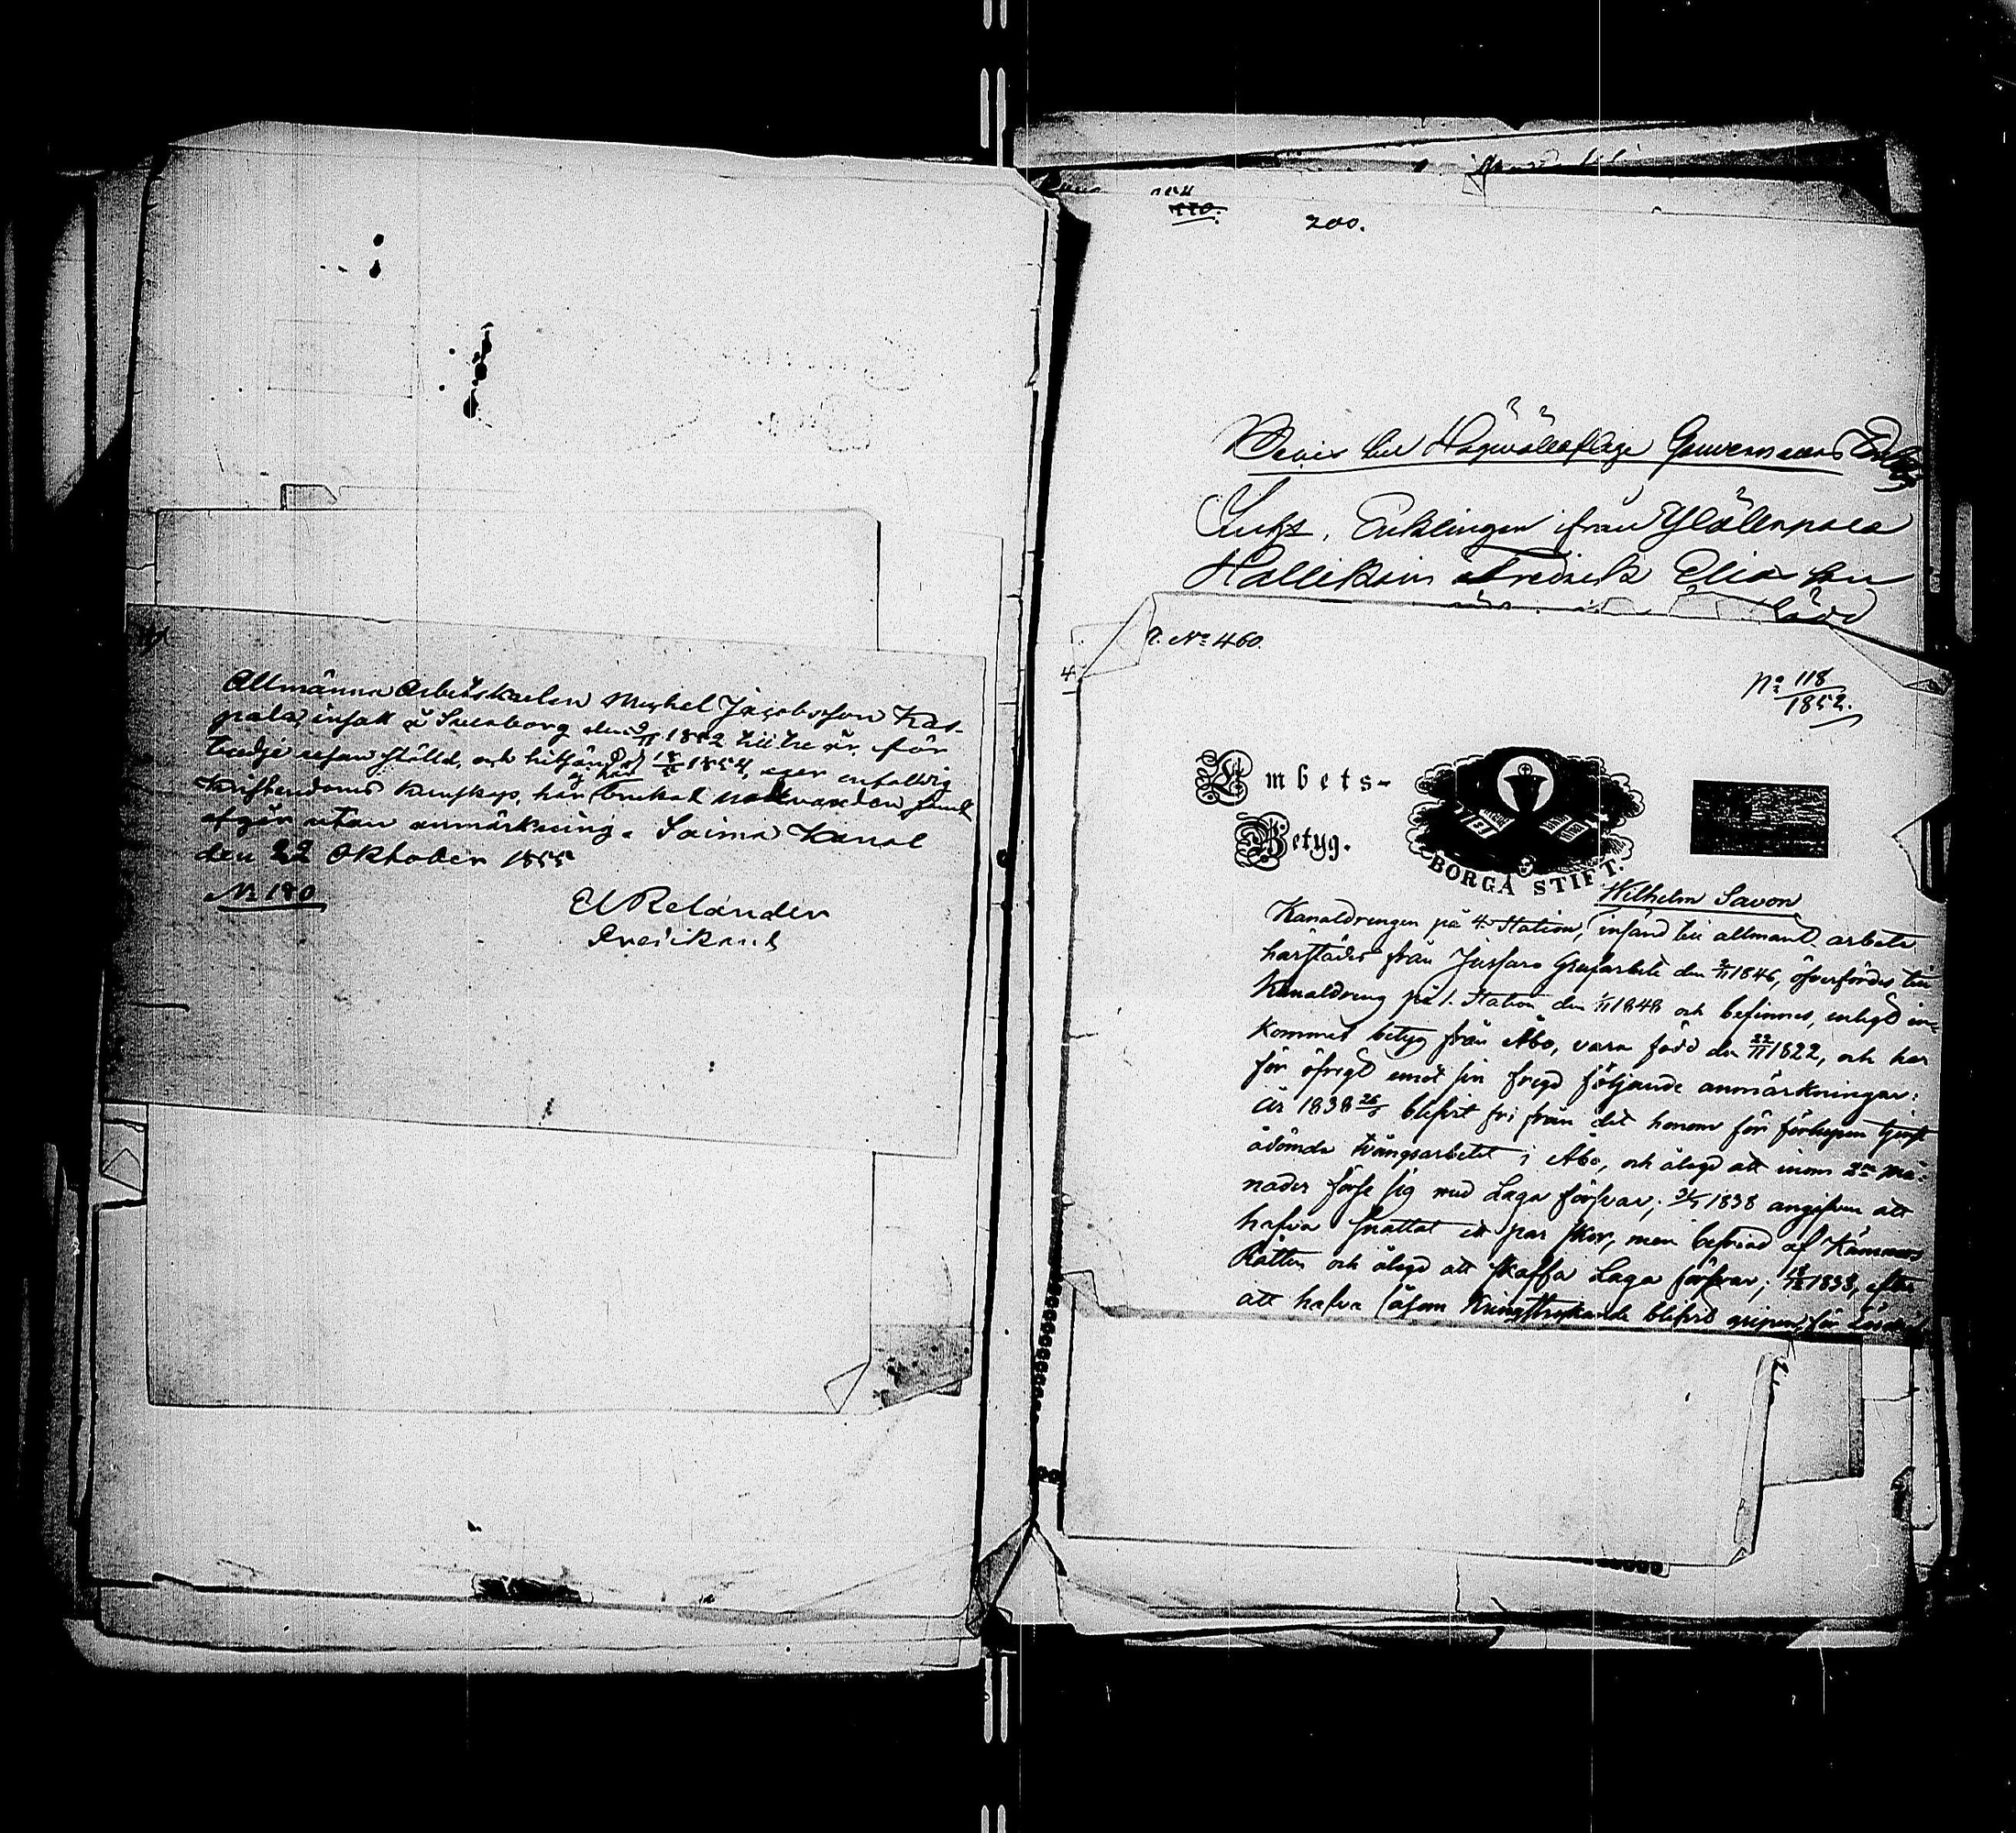 Allmänna Arbetskarlen Mickel Jacobsson Kas-
pala, insatt å Sveaborg den 9/11 1852 till tre år, för
tredje resan stöld, och hitsänd d 18/5 1854, eger enfaldig
Kristendoms kunskap, har ej här brukat nattvarden samt
afgår utan anmärkning. Saima Kanal
den 22 Oktober 1855
№ 190
El Relander
Predikant
200.
Bevis till Högvällofliga Gouvernements
Enklingen ifrån
Hallikain Fredrik Elias son
född
№ 460.
4
№ 118
1852.
Embets-
Betyg.
BORGÅ STIFT.
Wilhelm Savon
Kanaldrengen på 4. Station, insänd till allmänt arbete
härstädes från Jussarö Grufarbete den 2/11 1846, öfverfördes till
Kanaldreng på 1. Station den 1/11 1848 och befinnes, enligt in-
kommet betyg från Åbo, vara född den 22/11 1822, och har
för öfrigt emot sin fregd följande anmärkningar:
År 1838 26/5 blifvit fri från det honom för förlupen tjenst
ådömda tvångsarbetet i Åbo, och ålagd att inom 2ne må-
nader förse sig med Laga försvar; 1838 angifven att
hafva snattat ett par skor, men befriad af Kämners
Rätten och ålagd att skaffa Laga försvar; 18/12 1838, efter
att hafva såsom Kringstrykande blifvit gripen, för